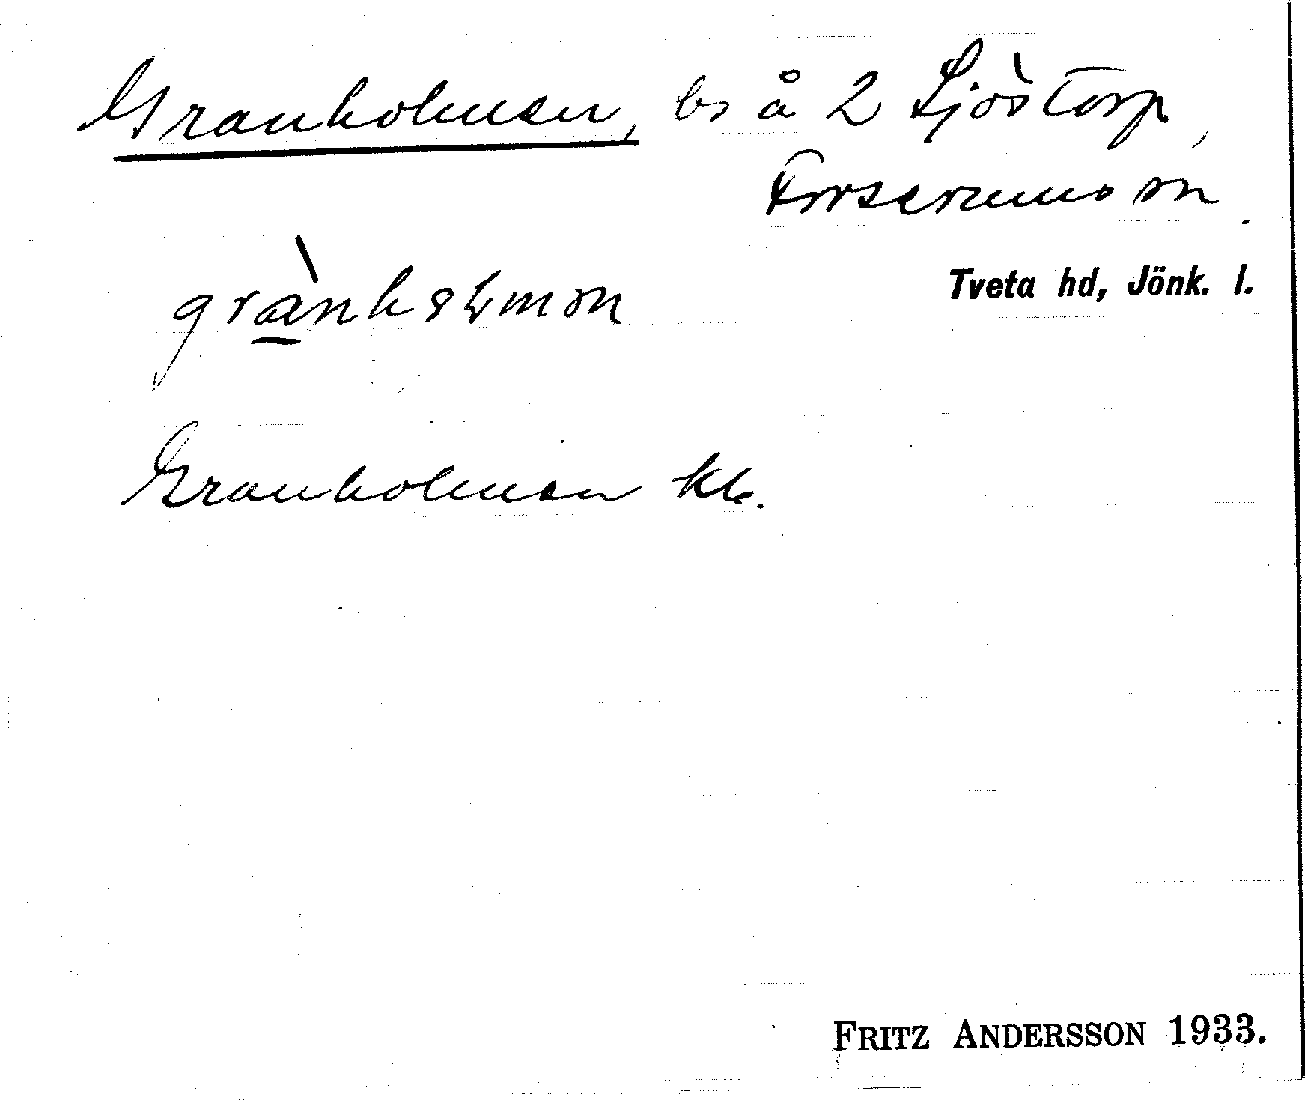 Granholmen, bs å 2 Sjöstorp,
Forserums sn.
Tveta hd, Jönk. l.
Granholmen kb.
FRITZ ANDERSSON 1933.